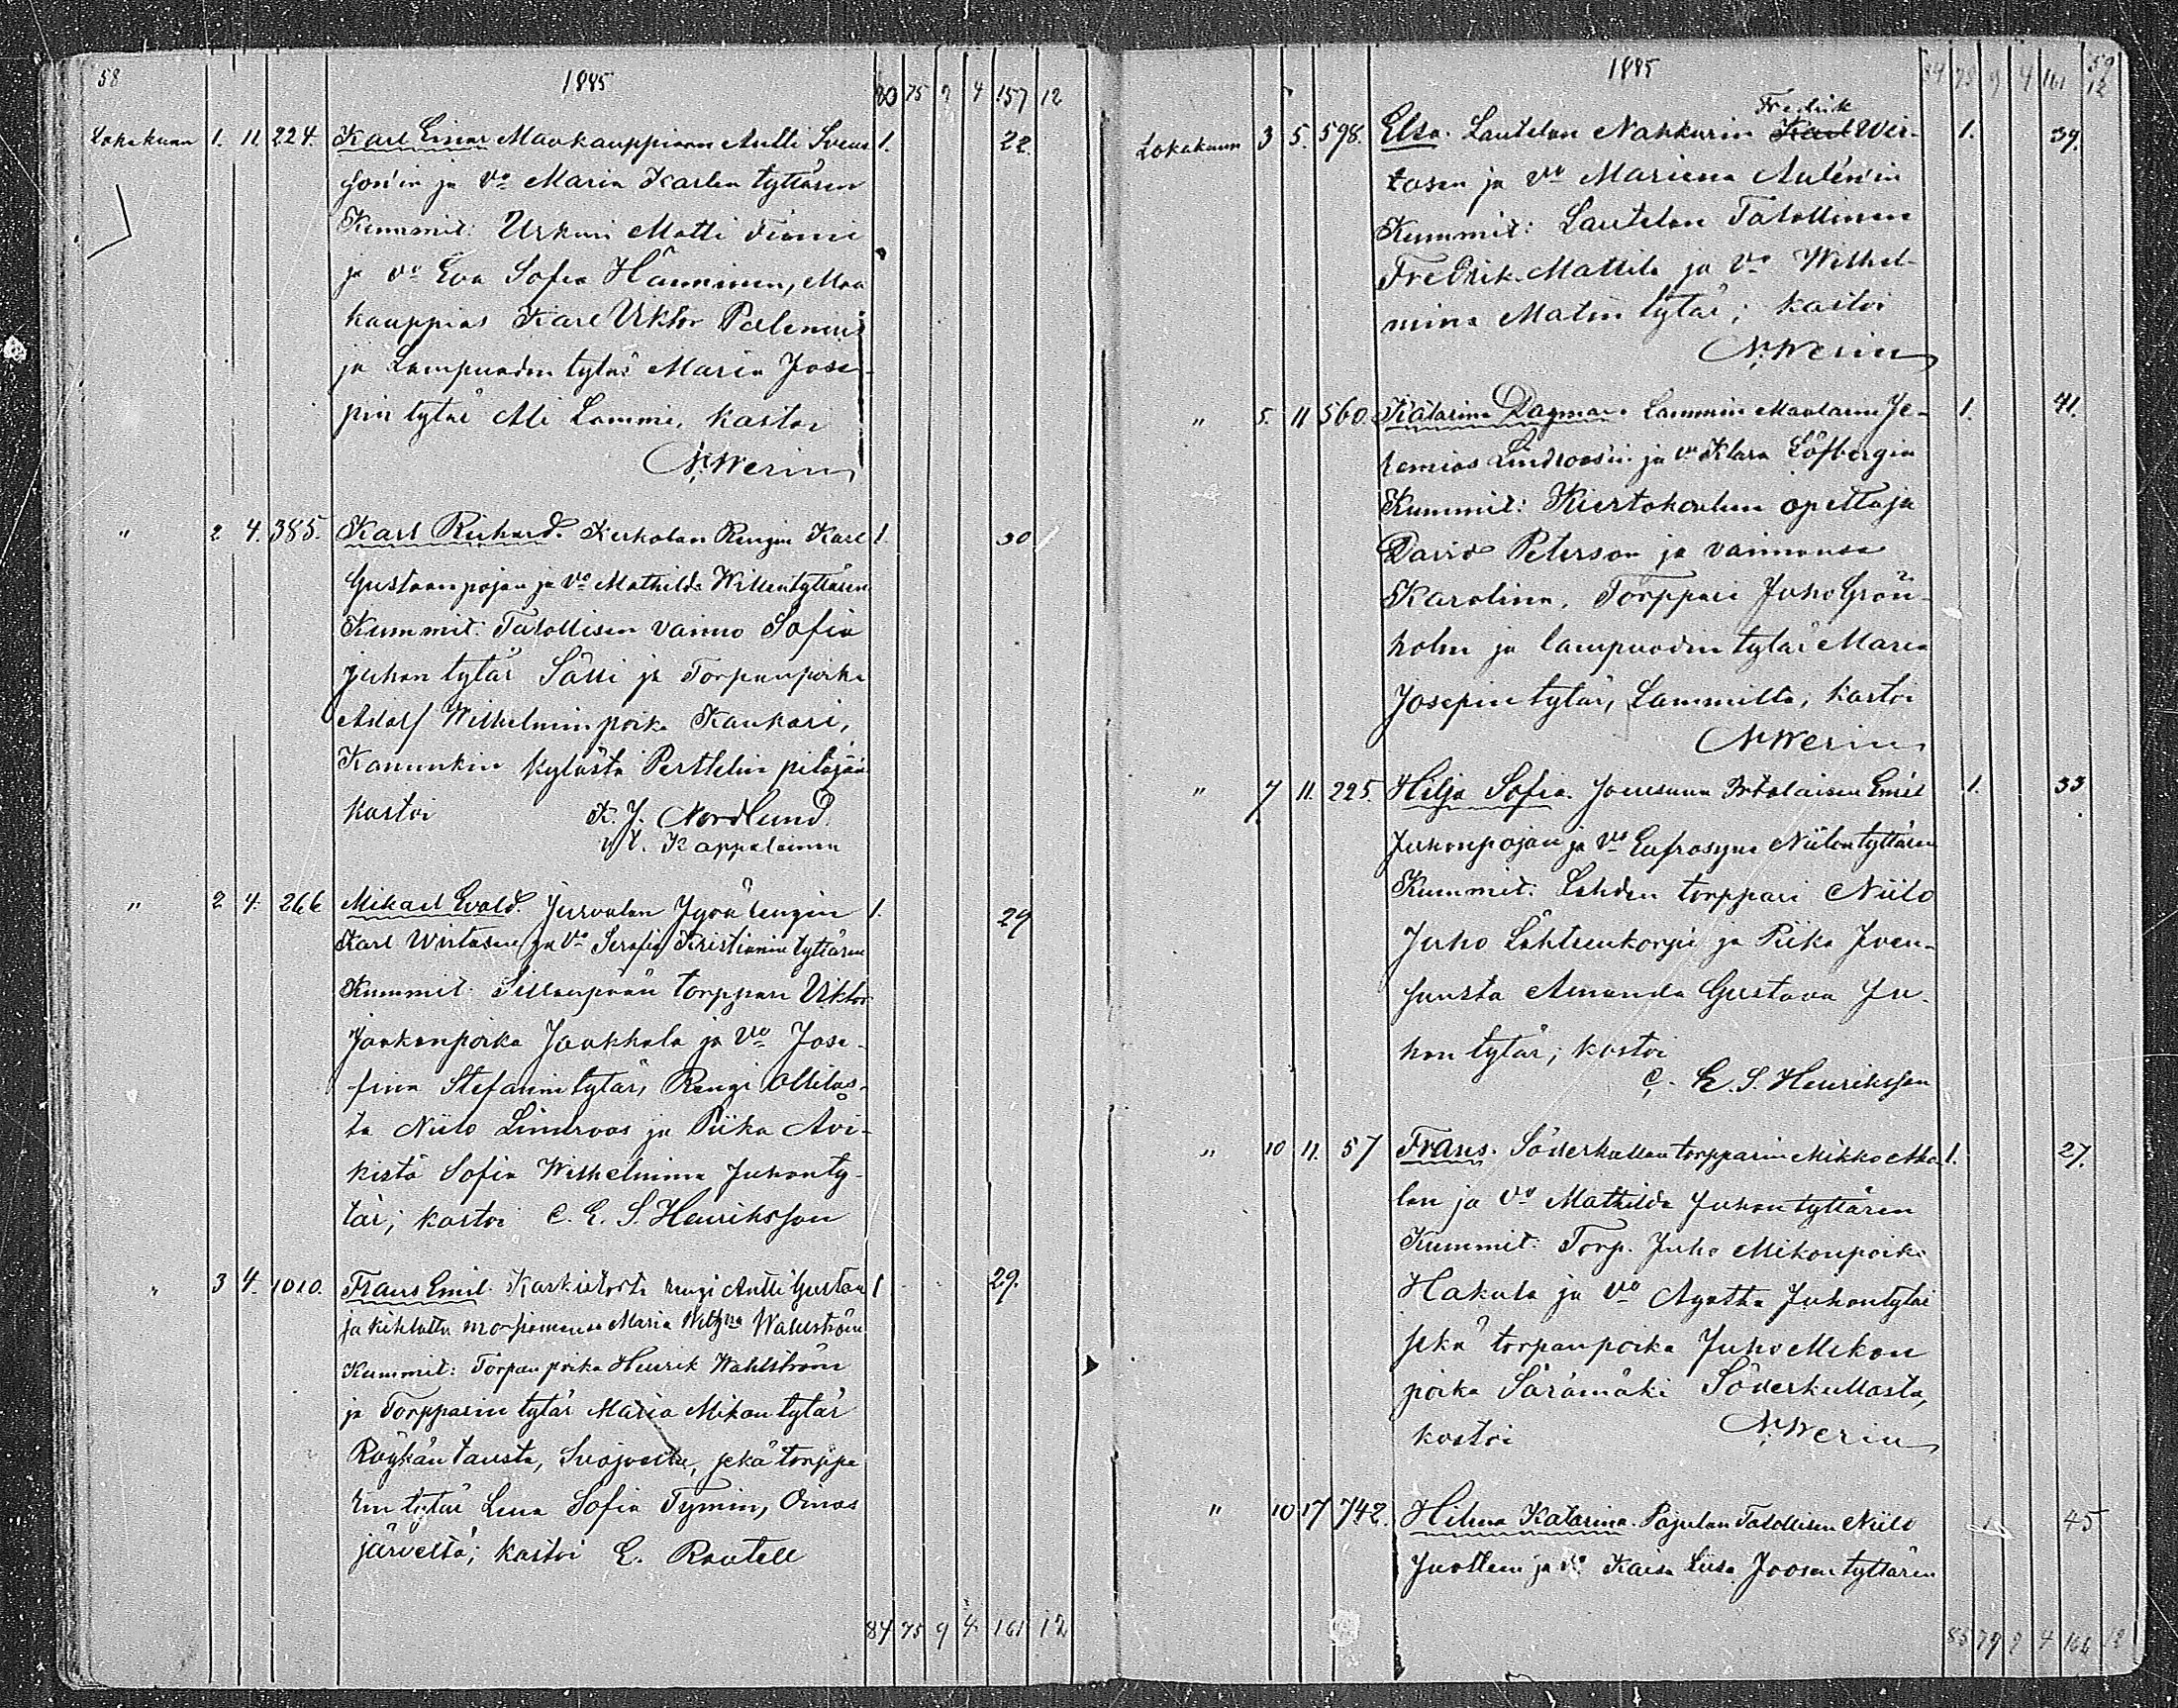 58
1885
80 75 9 4 157 12
Lokakuun 1. 11. 224. Karl Einar Maakauppiaan Antti Svens 1. 22.
son'in ja vo Maria Karlen tyttären
Kummit: Urkuri Matti Finni
ja vo Eva Sofia Hänninen, Maa
kauppias Karl Viktor Palenius
ja Lampuodin tytär Maria Jose-
pin tytär Ali Lammi, kastoi
N. Werin
" 2 4. 385. Karl Richard. Kerkolan Rengin Karl 1. 30
Gustaanpojan ja vo Mathilda Willentyttären
Kummit: Talollisen vaimo Sofia
Juhon tytär Sälli ja Torpanpoika
Adolf Wilhelmin poika Kankari,
Kanunkin kylästä Perttelin pitäjää
kastoi K. J. Nordlund.
v. t. Kappalainen
" 2 4. 266 Mikael Evald. Jurvalan Jyrä rengin 1. 29
Karl Wirtasen ja vo Serafia Kristianin tyttären
Kummit: Sillanpään torppari Viktor
Jaakonpoika Jaakkola ja vo Jose-
fina Stefanintytär, Rengi Ollilas-
ta Niilo Lindroos ja Piika Åvi-
kistä Sofia Wilhelmina Juhonty-
tär; kastoi C. E. S. Henriksson
" 3 4. 1010. Frans Emil. Karkia rengi Antti Gustaa 1 29.
ja kihlattu morsiamensa Maria Wahlström
Kummit: Torpan poika Henrik Wahlström
ja Torpparin tytär Maria Mikon tytär
Röykän tausta, Suojoelta, sekä torppa
rin tytär Lena Sofia Tymin, Oinas
järveltä; kastoi E. Rautell
84 75 9 4. 161 12
59
1885
84 75 9 4 161 12
Fredrik
Lokakuun 3 5. 598. Elsa. Lautelan Nahkurin Karl Wir- 1. 39.
tasen ja vo Mariena Autén'in
Kummit: Lautelan Talollinen
Fredrik Mattila ja vo Wilhel-
mina Matin tytär; kastoi
N. Werin
" 5. 11 560. Katarina Dagmar. Lammin Maalarin Je- 1. 41.
remias Lindroos'in ja vo Klara Löfbergin
Kummit: Kiertokoulun opettaja
David Peterson ja vaimonsa
Karolina, Torppari Juho Grön-
holm ja lampuodin tytär Maria
Josepin tytär, Lammilta; kastoi
N. Werin
" 7. 11. 225. Hilja Sofia. Joensuun Emil 1. 33
Juhonpojan ja vo Eufrosyne Niilontyttären
Kummit: Lahden torppari Niilo
Juho Lähteenkorpi ja Piika Joen-
suusta Amanda Gustava Ju-
hon tytär; kastoi
C. E. S. Henriksson
" 10 11. 57 Frans. Söderkullan torpparin Mikko 1. 27.
lan ja vo Mathilda Juhon tyttären
Kummit: Torp. Juho Mikonpoika
Hakula ja vo Agatha Juhontytär
sekä torpanpoika Juho Mikon
poika Säramäki Söderkullasta,
kastoi N. Werin
" 10 17 742. Hilma Katarina. Pajulan Talollisen Niilo 1. 45
Juottein ja vo Kaisa Liisa Joosen tyttären
85 79 9 4 166 12